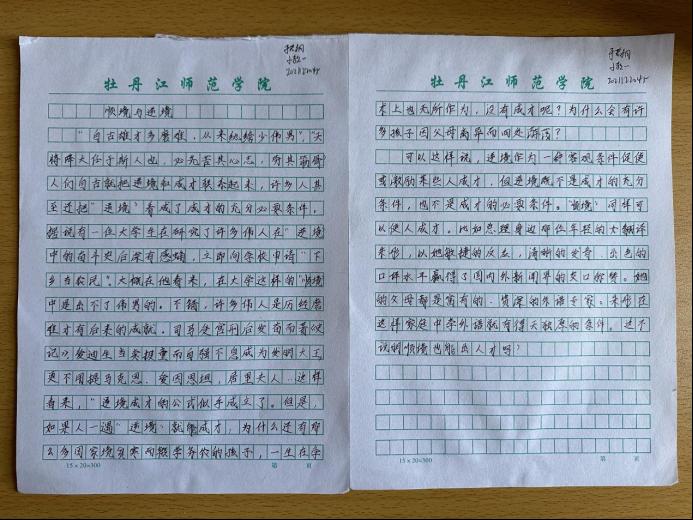 牡丹江师范学院
顺境与逆境
"自古雄才多磨难,从来纨绔少伟男","天
将降大任于斯人也,必先苦其心志,劳其筋骨
人们自古就把逆境和成才联系起来,许多人甚
至还把"逆境"看成了成才的充分必要条件,
据说有一位大学生在研究了许多伟人在"逆境
中的奋斗史后学有感触,立即向学校申请"下
乡当农民"。大概在他看来,在大学这样的"顺境
中是出不了伟男的。不错,许多伟人是历经磨
难才有后来的成就。司马迁宫刑后发愤而著《史
记》爱迪生当卖报童而自强不息成为发明大王
更不用提马克思、爱因思坦,居里夫人…这样
看来,"逆境成才的公式似乎成立了。但是,
如果人一遇"逆境"就能成才,为什么还有那
么多因家境贫寒而辍学务农的孩子,一生在学
15×20=300
第 页
牡丹江师范学院
术上也无所作为,没有成才呢?为什么会有许
多孩子因父母离异而向处
可以这样说,逆境作为一种客观条件促使
或激励某些人成才,但逆境既不是成才的充分
条件,也不是成才的必要条件。"顺境"同样可
以使人成才。比如总理身边那位年轻的女翻译
朱彤,以她敏捷的反应,清晰的发音,出色的
口译水平赢得了国内外新闻界的交口称赞。她
的父母都是富有的、资深的外语专家、朱彤在
这样家庭中学外语就有得天独厚的条件。这不
说明顺境也能出人才吗?
15×20=300
第 页